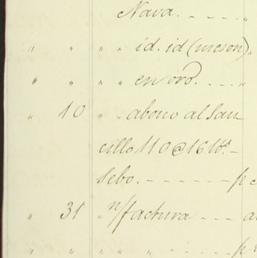 Nava. - - - -
" " " " id. id (meson)
" " " " en oro. - - - -
" 10 " abono al San-
cillo 110 @ 16 lbs. -
sebo. - - - - - - p c
" 31 " n/factura - - - a
" " " " " " p